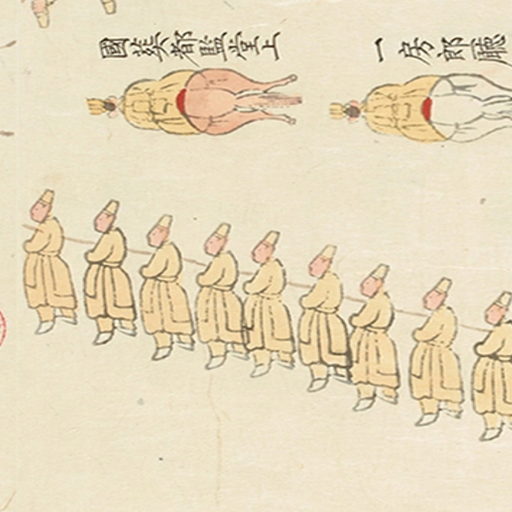 國葬都監堂上
一房郎廳